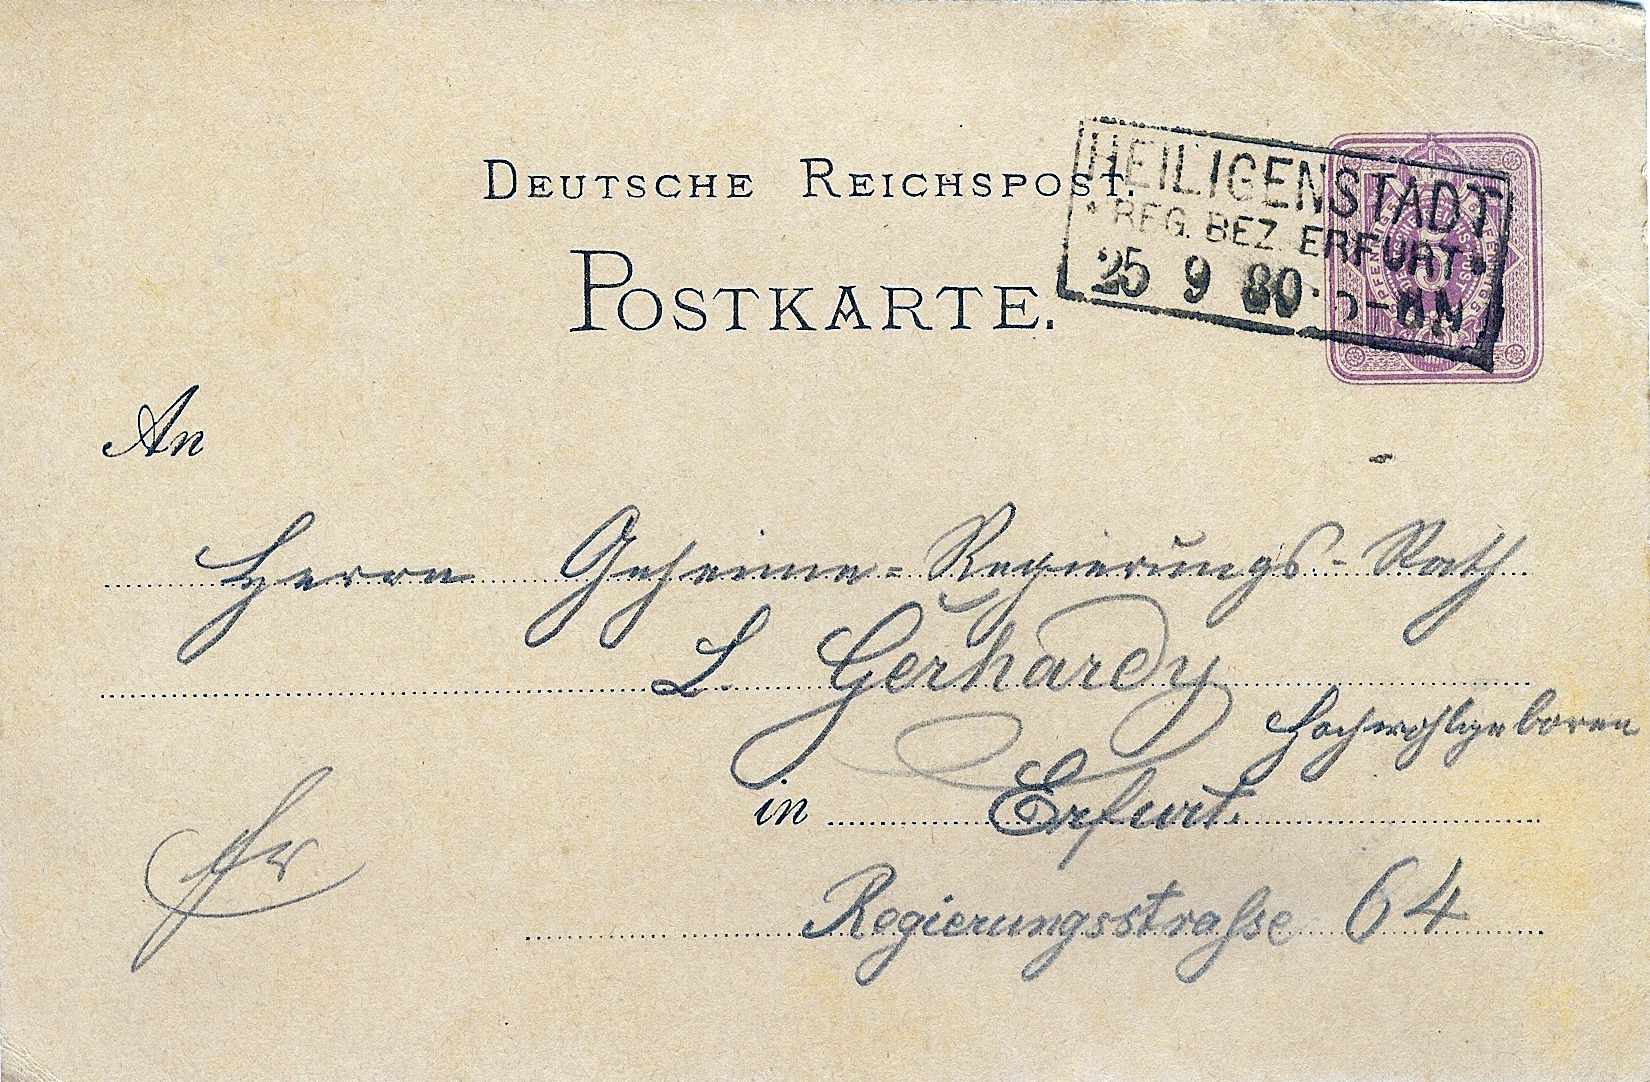 DEUTSCHE REICHSPOST.
POSTKARTE.
HEILIGENSTADT
* REG. BEZ. ERFURT *
25 9 80 5-6N
An
Herrn Geheime-Regierungs-Rath
L. Gerhardy
Hochwohlgeboren
in Erfurt.
Fr
Regierungsstraße 64